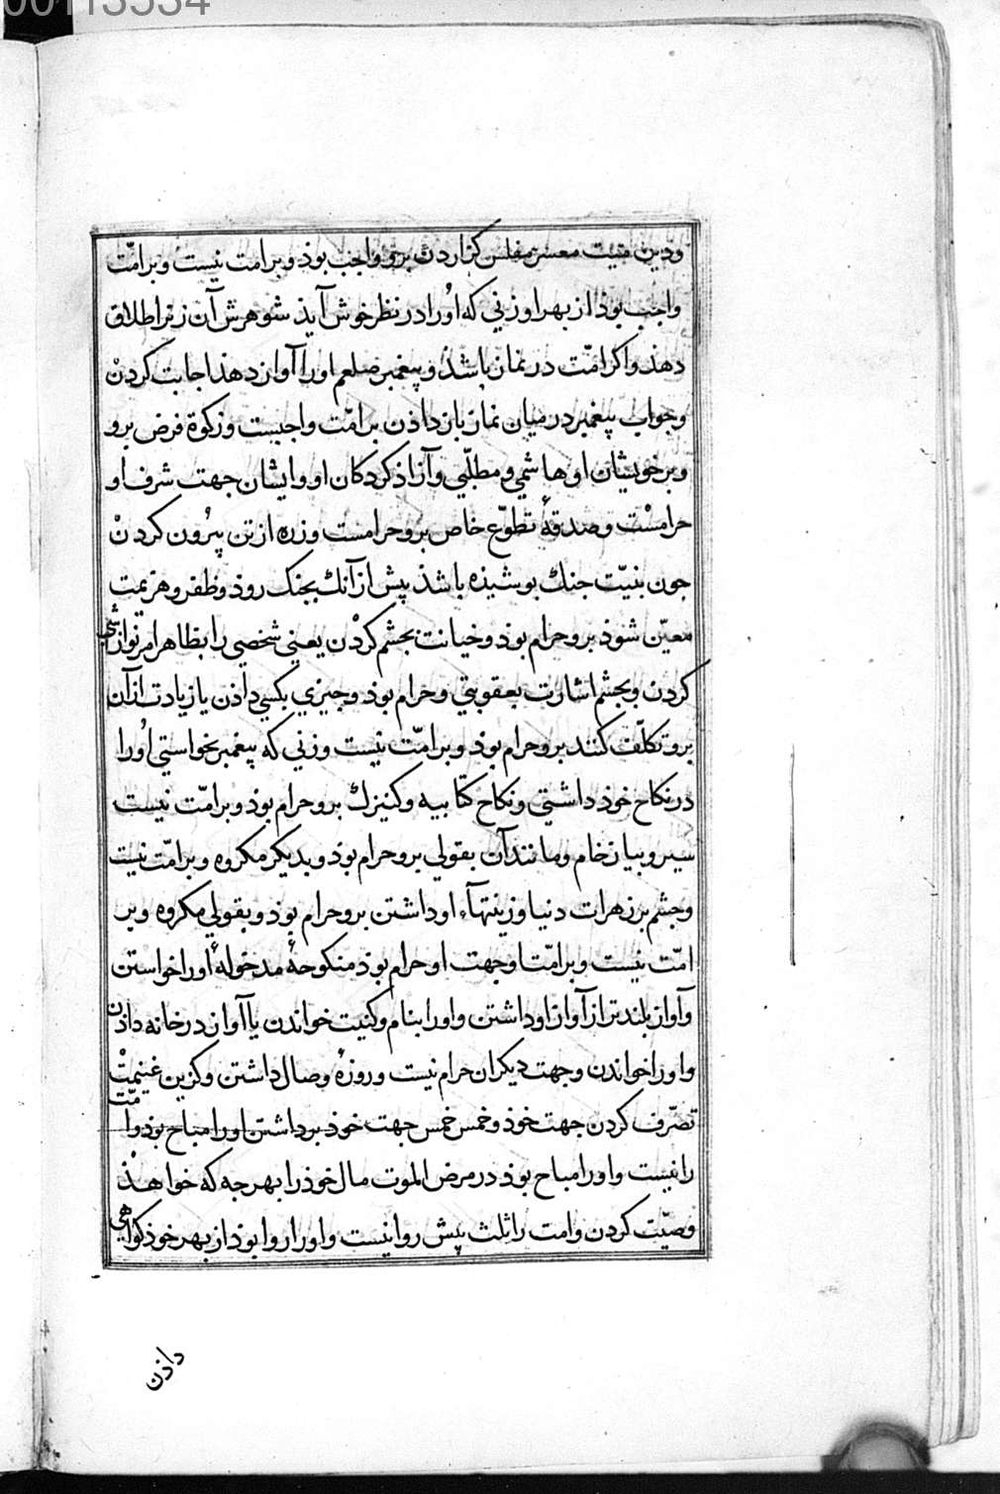 00113534
ودین میت معسر مفلس کزاردن برو واجب بوذ و بر امت نیست و بر امّت
واجب بوذ از بهر او زنی که اورا در نظر خوش آیذ شوهرش آن زنرا طلاق
دهذ واکر امّت در نماز باشذ و پیغمبر صلعم اورا آواز دهذ اجابت کردن
وجواب پیغمبر در میان نماز باز داذن بر امّت واجبست وزکوة فرض برو
وبر خویشان او هاشمی و مطلّبی و آزاذ کردکان او و ایشان جهت شرف او
حرامست و صدقهٔ تطوّع خاص برو حرامست و زره از تن بیرون کردن
جون بنیّت جنك بوشیذه باشذ پیش از آنك بجنك روذ و ظفر و هزیمت
معیّن شوذ برو حرام بوذ و خیانت بجشم کردن یعنی شخصی را بظاهر امر نوازشی
کردن و بجشم اشارت بعقوبتی و حرام بوذ و جیزی بکسی داذن یا زیادت از آن
برو تکلّف کنند برو حرام بوذ و بر امّت نیست و زنی که پیغمبر بخواستی اورا
در نکاح خوذ داشتی و نکاح کتابیه و کنیزك برو حرام بوذ و بر امّت نیست
سیر و بیاز خام و مانند آن بقولی برو حرام بوذ و بدیکر مکروه و بر امّت نیست
وجشم بر زهرات دنیا و زینتهاء او داشتن برو حرام بوذ و بقولی مکروه و بر
امّت نیست و بر امّت او جهت او حرام بوذ منکوحهٔ مدخولهٔ اورا خواستن
وآواز بلندتر از آواز او داشتن و اورا بنام و کنیت خواندن یا آواز در خانه داذن
واورا خواندن و جهت دیکران حرام نیست و روزهٔ وصال داشتن و کزین غنیمت
تصرّف کردن جهت خوذ و خمس خمس جهت خوذ برداشتن اورا مباح بوذ و امّت
را نیست و اورا مباح بوذ در مرض الموت مال خوذ را بهرجه که خواهذ
وصیّت کردن و امت را ثلث بیش روا نیست و اورا روا بوذ از بهر خوذ کواهی
داذن